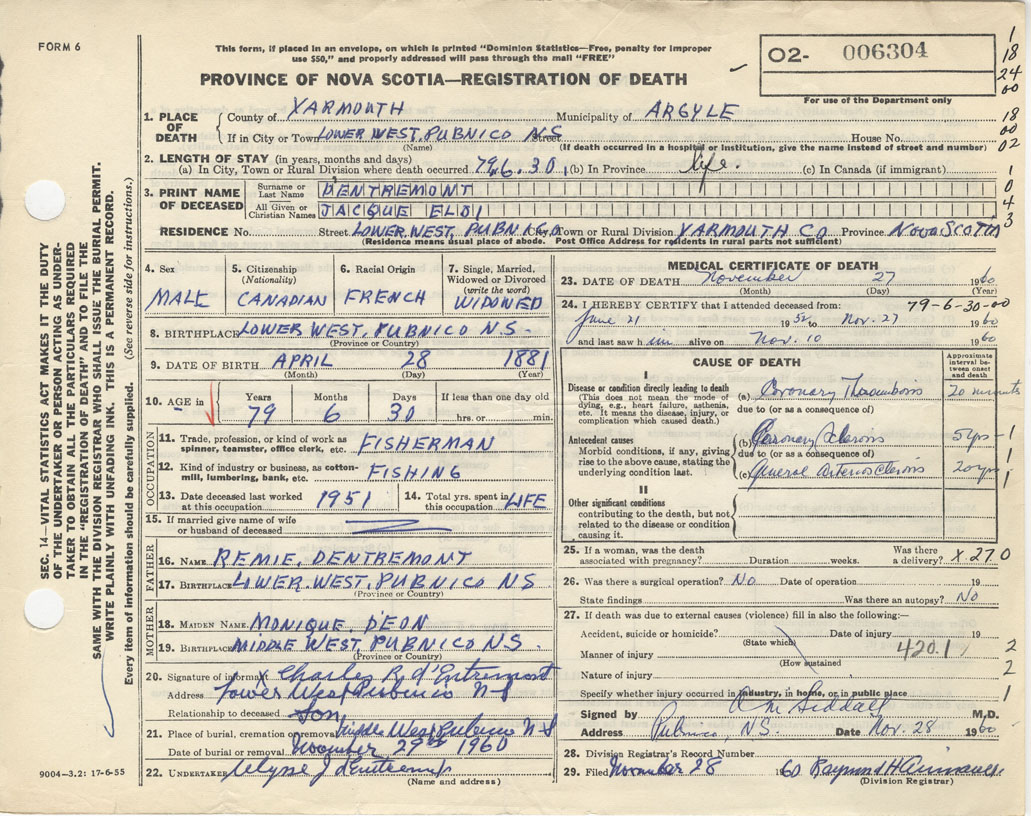 FORM 6
This form, if placed in an envelope, on which is printed "Dominion Statistics—Free, penalty for improper
use $50," and properly addressed will pass through the mail "FREE"
PROVINCE OF NOVA SCOTIA—REGISTRATION OF DEATH
O2- 006304
For use of the Department only
1
18
24
00
18
00
02
1
0
4
3
1. PLACE OF DEATH
County of YARMOUTH Municipality of ARGYLE
If in City or Town LOWER WEST, PUBNICO NS Street House No.
(Name) (If death occurred in a hospital or institution, give the name instead of street and number)
2. LENGTH OF STAY (in years, months and days)
(a) In City, Town or Rural Division where death occurred 79.6.30 (b) In Province life. (c) In Canada (if immigrant)
3. PRINT NAME OF DECEASED
Surname or Last Name DENTREMONT
All Given or Christian Names JACQUE ELOI
RESIDENCE No. Street LOWER WEST, PUBNICO City, Town or Rural Division YARMOUTH CO Province NOVA SCOTIA
(Residence means usual place of abode. Post Office Address for residents in rural parts not sufficient)
4. Sex
MALE
5. Citizenship
(Nationality)
CANADIAN
6. Racial Origin
FRENCH
7. Single, Married, Widowed or Divorced
(write the word)
WIDOWED
8. BIRTHPLACE LOWER WEST, PUBNICO NS-
(Province or Country)
9. DATE OF BIRTH APRIL 28 1881
(Month) (Day) (Year)
10. AGE in
Years Months Days If less than one day old
79 6 30 hrs. or min.
OCCUPATION
11. Trade, profession, or kind of work as
spinner, teamster, office clerk, etc. FISHERMAN
12. Kind of industry or business, as cotton-
mill, lumbering, bank, etc. FISHING
13. Date deceased last worked
at this occupation 1951
14. Total yrs. spent in
this occupation LIFE
15. If married give name of wife
or husband of deceased
FATHER
16. NAME REMIE, DENTREMONT
17. BIRTHPLACE LOWER. WEST, PUBNICO NS
(Province or Country)
MOTHER
18. MAIDEN NAME MONIQUE, D'EON
19. BIRTHPLACE MIDDLE WEST, PUBNICO NS.
(Province or Country)
20. Signature of informant X Charles R d'Entremont
Address Lower West Pubnico N-S
Relationship to deceased Son
21. Place of burial, cremation or removal Middle West Pubnico N S
Date of burial or removal November 29th 1960
22. UNDERTAKER Ulysse J d'Entremont
(Name and address)
MEDICAL CERTIFICATE OF DEATH
23. DATE OF DEATH November 27 1960
(Month) (Day) (Year)
24. I HEREBY CERTIFY that I attended deceased from: 79-6-30-00
June 21 1952 to Nov. 27 1960
and last saw him alive on Nov. 10 1960
CAUSE OF DEATH
Approximate interval between onset and death
I
Disease or condition directly leading to death
(This does not mean the mode of
dying, e.g., heart failure, asthenia,
etc. It means the disease, injury, or
complication which caused death.)
(a) Coronary Thrombosis 20 minutes
due to (or as a consequence of)
Antecedent causes
Morbid conditions, if any, giving
rise to the above cause, stating the
underlying condition last.
(b) Coronary Sclerosis 5 yrs - 1
due to (or as a consequence of)
(c) General arteriosclerosis 20 yrs 1
1
II
Other significant conditions
contributing to the death, but not
related to the disease or condition
causing it.
25. If a woman, was the death
associated with pregnancy? Duration weeks. Was there
a delivery? X270
26. Was there a surgical operation? NO Date of operation 19
State findings Was there an autopsy? No
27. If death was due to external causes (violence) fill in also the following:—
Accident, suicide or homicide? Date of injury 19
(State which)
Manner of injury 420.1 2
(How sustained
Nature of injury 2
Specify whether injury occurred in industry, in home, or in public place 1
Signed by A M Siddall M.D.
Address Pubnico, NS. Date Nov. 28 1960
28. Division Registrar's Record Number
29. Filed November 28 1960 Raymond H
(Division Registrar)
SEC. 14—VITAL STATISTICS ACT MAKES IT THE DUTY
OF THE UNDERTAKER OR PERSON ACTING AS UNDER-
TAKER TO OBTAIN ALL THE PARTICULARS REQUIRED
IN THE "REGISTRATION OF DEATH" AND TO FILE THE
SAME WITH THE DIVISION REGISTRAR WHO SHALL ISSUE THE BURIAL PERMIT.
WRITE PLAINLY WITH UNFADING INK. THIS IS A PERMANENT RECORD.
Every item of information should be carefully supplied. (See reverse side for instructions.)
9004—3.2: 17-6-55